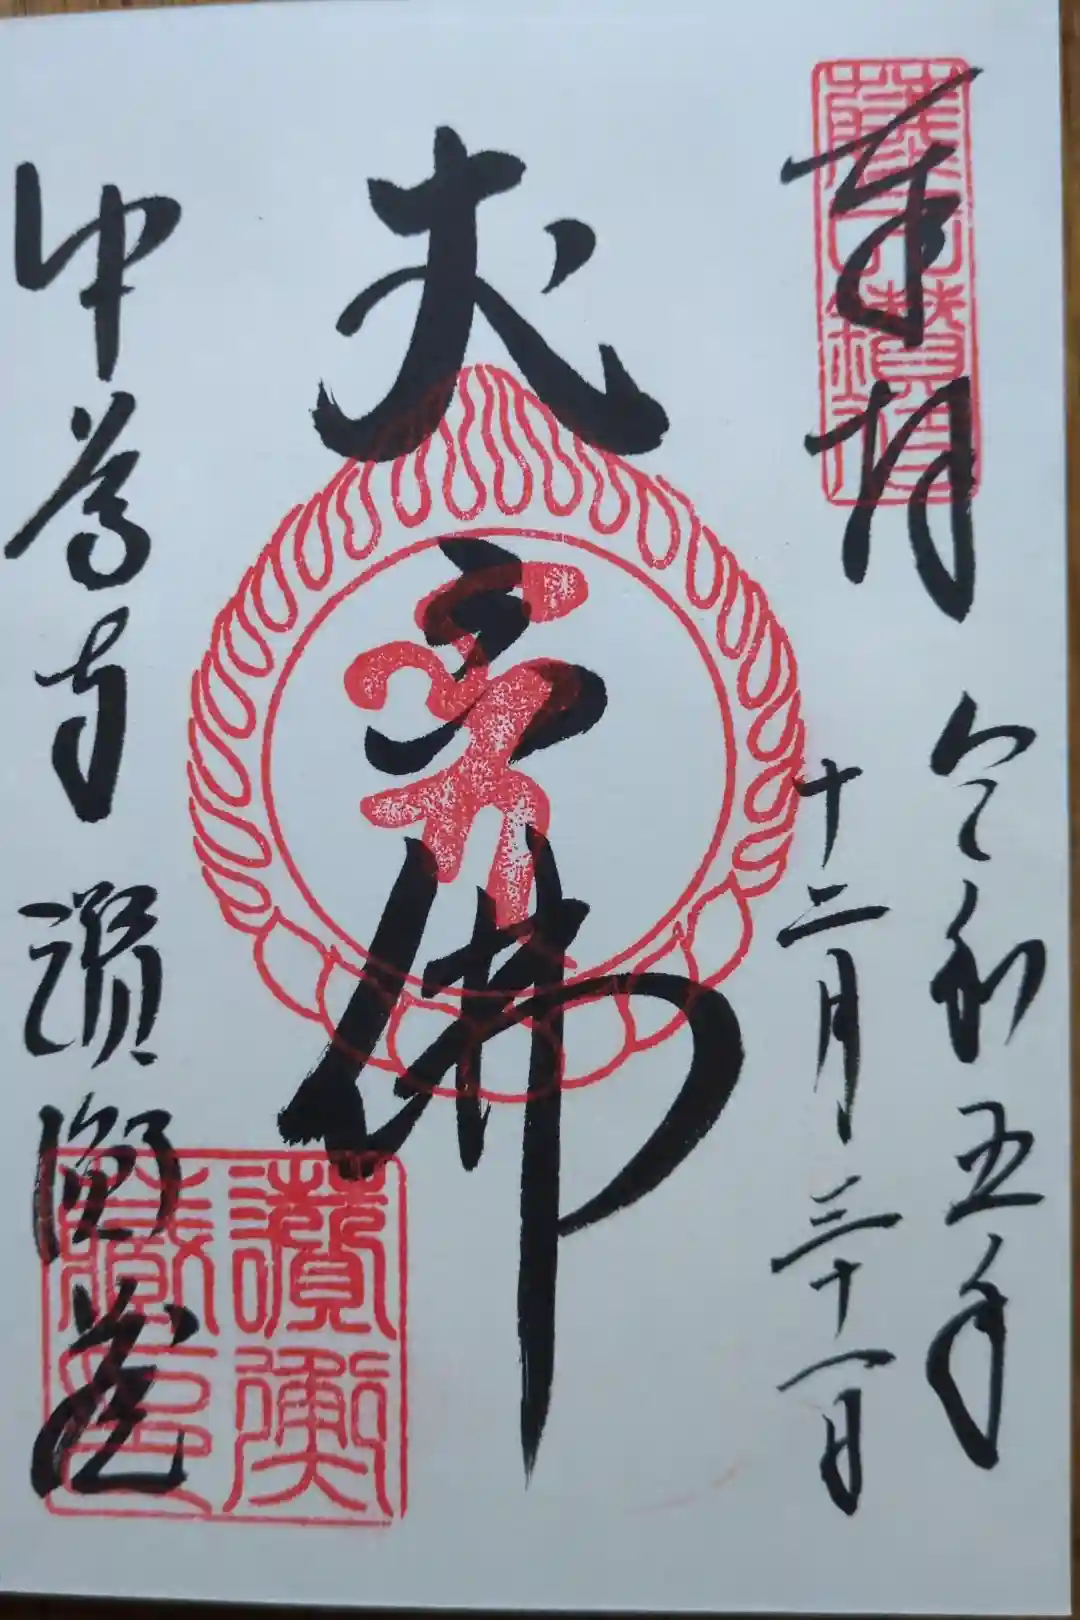 奉拝
令和五年
十二月三十一日
丈六佛
中尊寺 讃衡蔵
讚衡
藏印